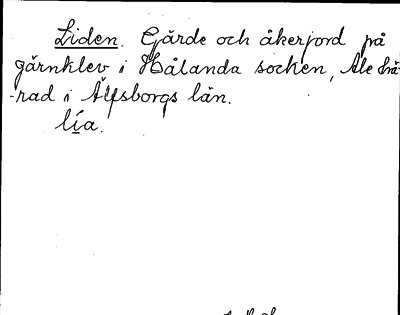 Liden. Gärde och åkerjord på
gärnklev i Hålanda socken, Ale hä-
-rad i Älfsborgs län.
lía.